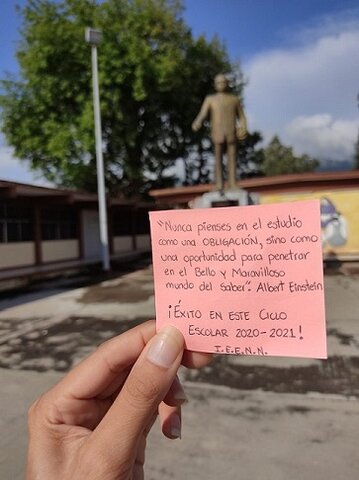 "Nunca pienses en el estudio
como una OBLIGACIÓN, sino como
una oportunidad para penetrar
en el Bello y Maravilloso
mundo del saber". Albert Einstein
¡ÉXITO EN ESTE CICLO
ESCOLAR 2020-2021!
I.E.E.N.N.